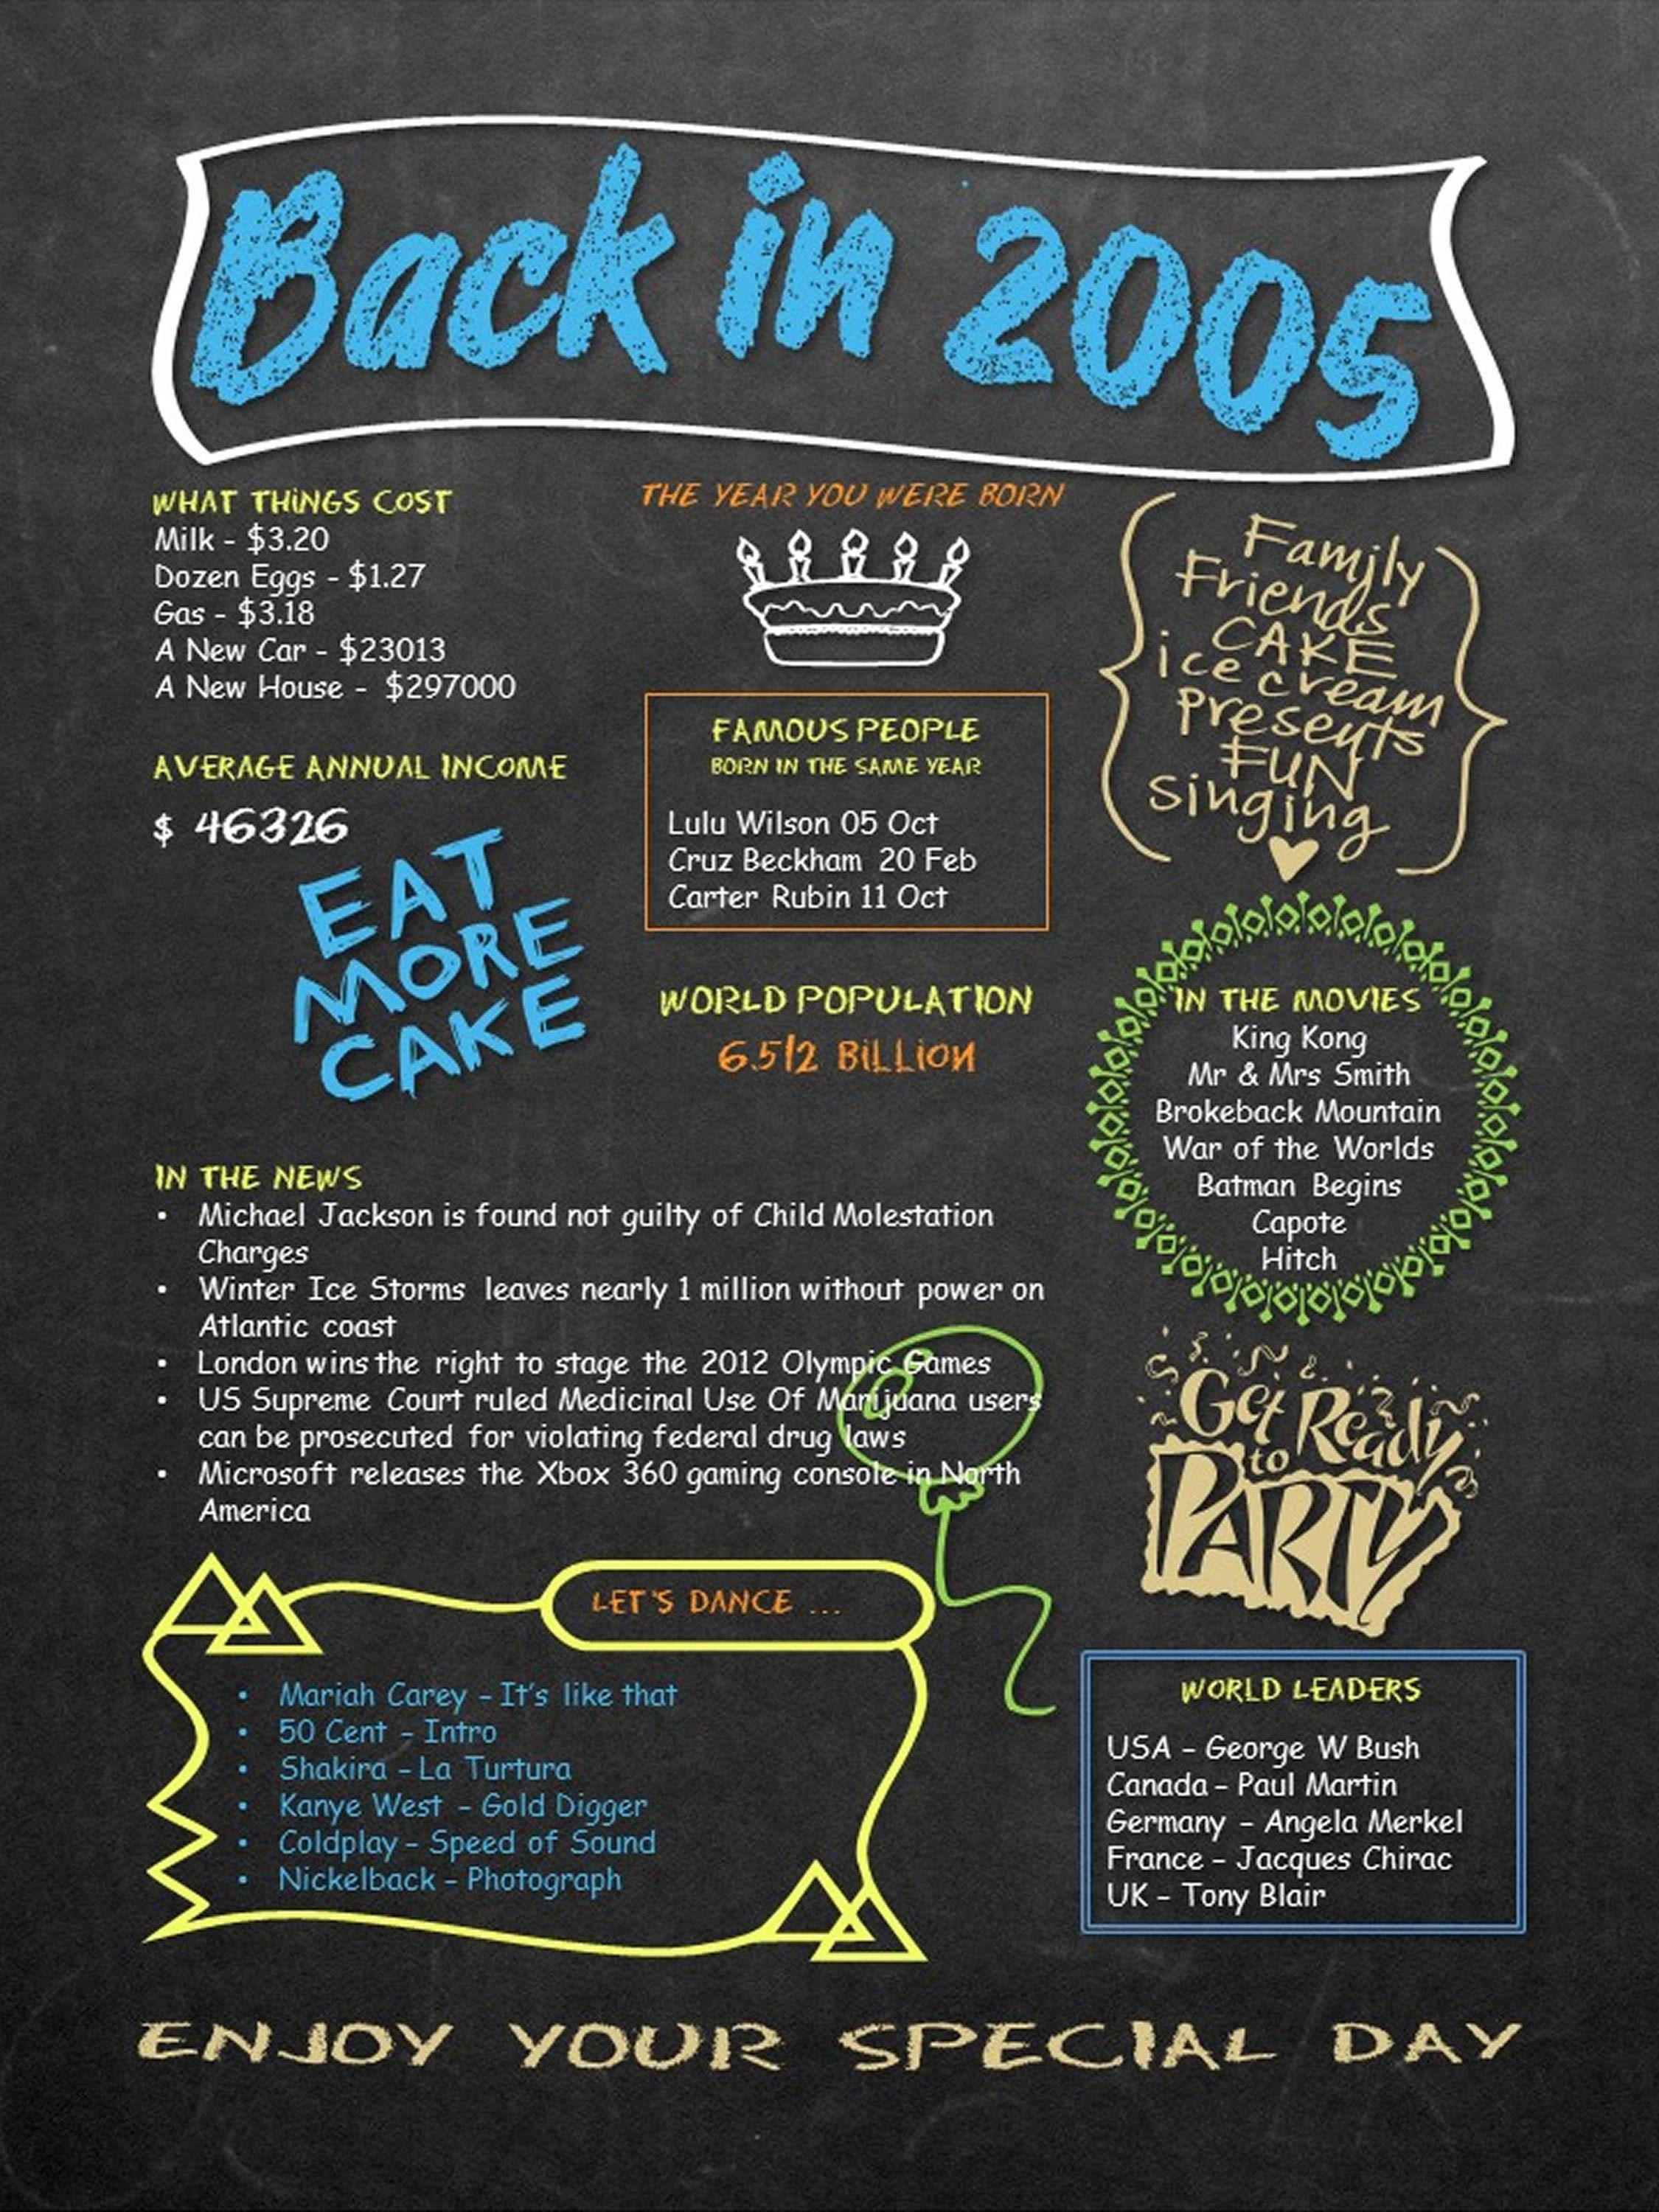 Back in 2005
WHAT THINGS COST
Milk - $3.20
Dozen Eggs - $1.27
Gas - $3.18
A New Car - $23013
A New House - $297000
AVERAGE ANNUAL INCOME
$ 46326
EAT
MORE
CAKE
THE YEAR YOU WERE BORN
FAMOUS PEOPLE
BORN IN THE SAME YEAR
Lulu Wilson 05 Oct
Cruz Beckham 20 Feb
Carter Rubin 11 Oct
WORLD POPULATION
6.512 BILLION
Family
Friends
CAKE
ice cream
Presents
FUN
Singing
IN THE MOVIES
King Kong
Mr & Mrs Smith
Brokeback Mountain
War of the Worlds
Batman Begins
Capote
Hitch
IN THE NEWS
• Michael Jackson is found not guilty of Child Molestation
Charges
• Winter Ice Storms leaves nearly 1 million without power on
Atlantic coast
• London wins the right to stage the 2012 Olympic Games
• US Supreme Court ruled Medicinal Use Of Marijuana users
can be prosecuted for violating federal drug laws
• Microsoft releases the Xbox 360 gaming console in North
America
Get Ready
to
PARTY
LET'S DANCE ...
• Mariah Carey – It's like that
• 50 Cent – Intro
• Shakira – La Turtura
• Kanye West – Gold Digger
• Coldplay – Speed of Sound
• Nickelback – Photograph
WORLD LEADERS
USA – George W Bush
Canada – Paul Martin
Germany – Angela Merkel
France – Jacques Chirac
UK – Tony Blair
ENJOY YOUR SPECIAL DAY